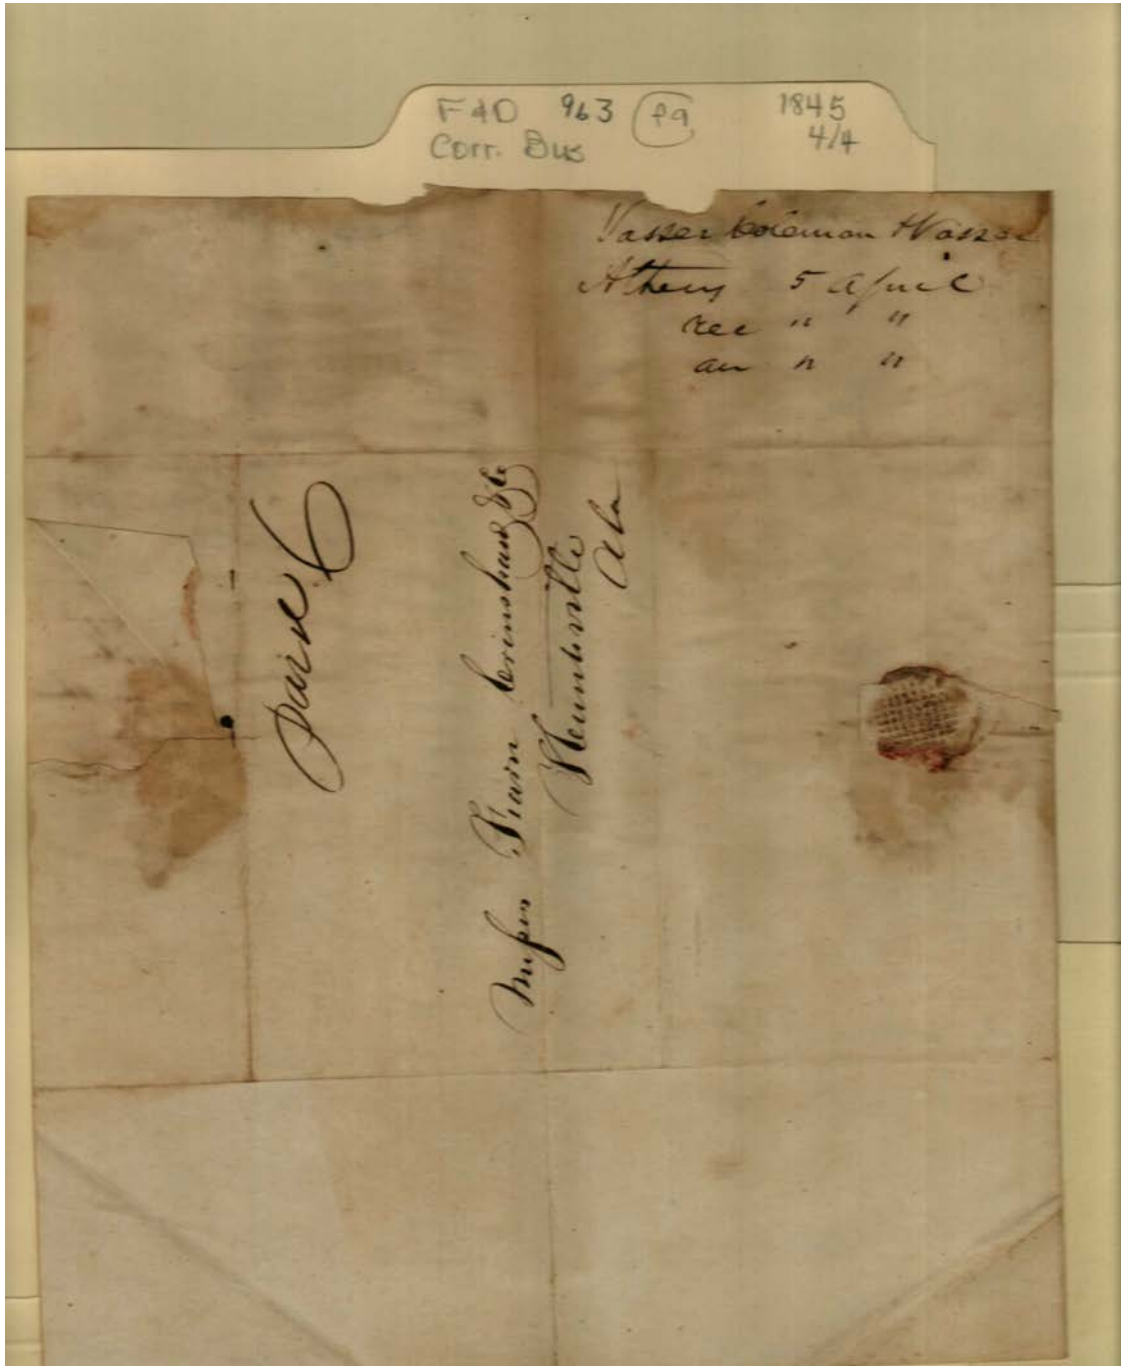 F&D 963 Fa 1845
Corr. Bus 4/4
Vasser Coleman & Vasser
Athens 5 April
rec " "
an " "
paid 6
Messrs Crinshaw & Co
Huntsville
Ala